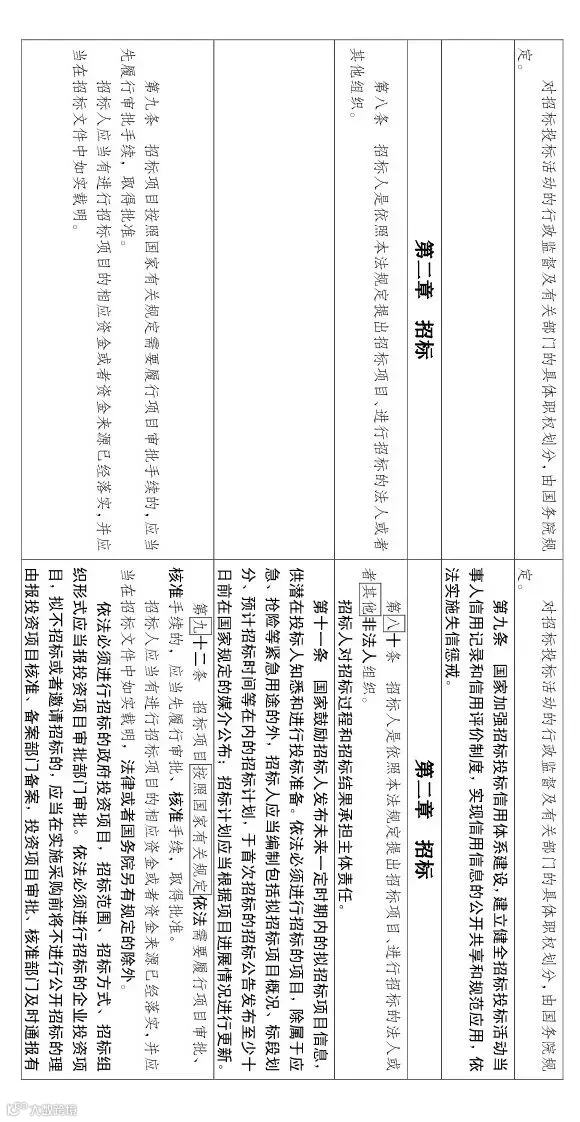 对招标投标活动的行政监督及有关部门的具体职权划分，由国务院规
定。
对招标投标活动的行政监督及有关部门的具体职权划分，由国务院规
定。
第九条 国家加强招标投标信用体系建设，建立健全招标投标活动当
事人信用记录和信用评价制度，实现信用信息的公开共享和规范应用，依
法实施失信惩戒。
第二章 招标
第二章 招标
第八条 招标人是依照本法规定提出招标项目、进行招标的法人或者
其他组织。
第八十条 招标人是依照本法规定提出招标项目、进行招标的法人或
者其他非法人组织。
招标人对招标过程和招标结果承担主体责任。
第十一条 国家鼓励招标人发布未来一定时期内的拟招标项目信息，
供潜在投标人知悉和进行投标准备。依法必须进行招标的项目，除属于应
急、抢险等紧急用途的外，招标人应当编制包括拟招标项目概况、标段划
分、预计招标时间等在内的招标计划，于首次招标的招标公告发布至少十
日前在国家规定的媒介公布；招标计划应当根据项目进展情况进行更新。
第九条 招标项目按照国家有关规定需要履行项目审批手续的，应当
先履行审批手续，取得批准。
招标人应当有进行招标项目的相应资金或者资金来源已经落实，并应
当在招标文件中如实载明。
第九十二条 招标项目按照国家有关规定依法需要履行项目审批、
核准手续的，应当先履行审批、核准手续，取得批准。
招标人应当有进行招标项目的相应资金或者资金来源已经落实，并应
当在招标文件中如实载明，法律或者国务院另有规定的除外。
依法必须进行招标的政府投资项目，招标范围、招标方式、招标组
织形式应当报投资项目审批部门审批。依法必须进行招标的企业投资项
目，拟不招标或者邀请招标的，应当在实施采购前将不进行公开招标的理
由报投资项目核准、备案部门备案，投资项目审批、核准部门及时通报有
大数跨境